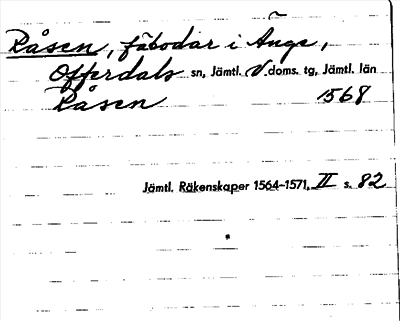 Råsen, fäbodar i Änge,
Offerdals sn, Jämtl. V. doms. tg, Jämtl. län
Råsen 1568
Jämtl. Räkenskaper 1564-1571, II s. 82